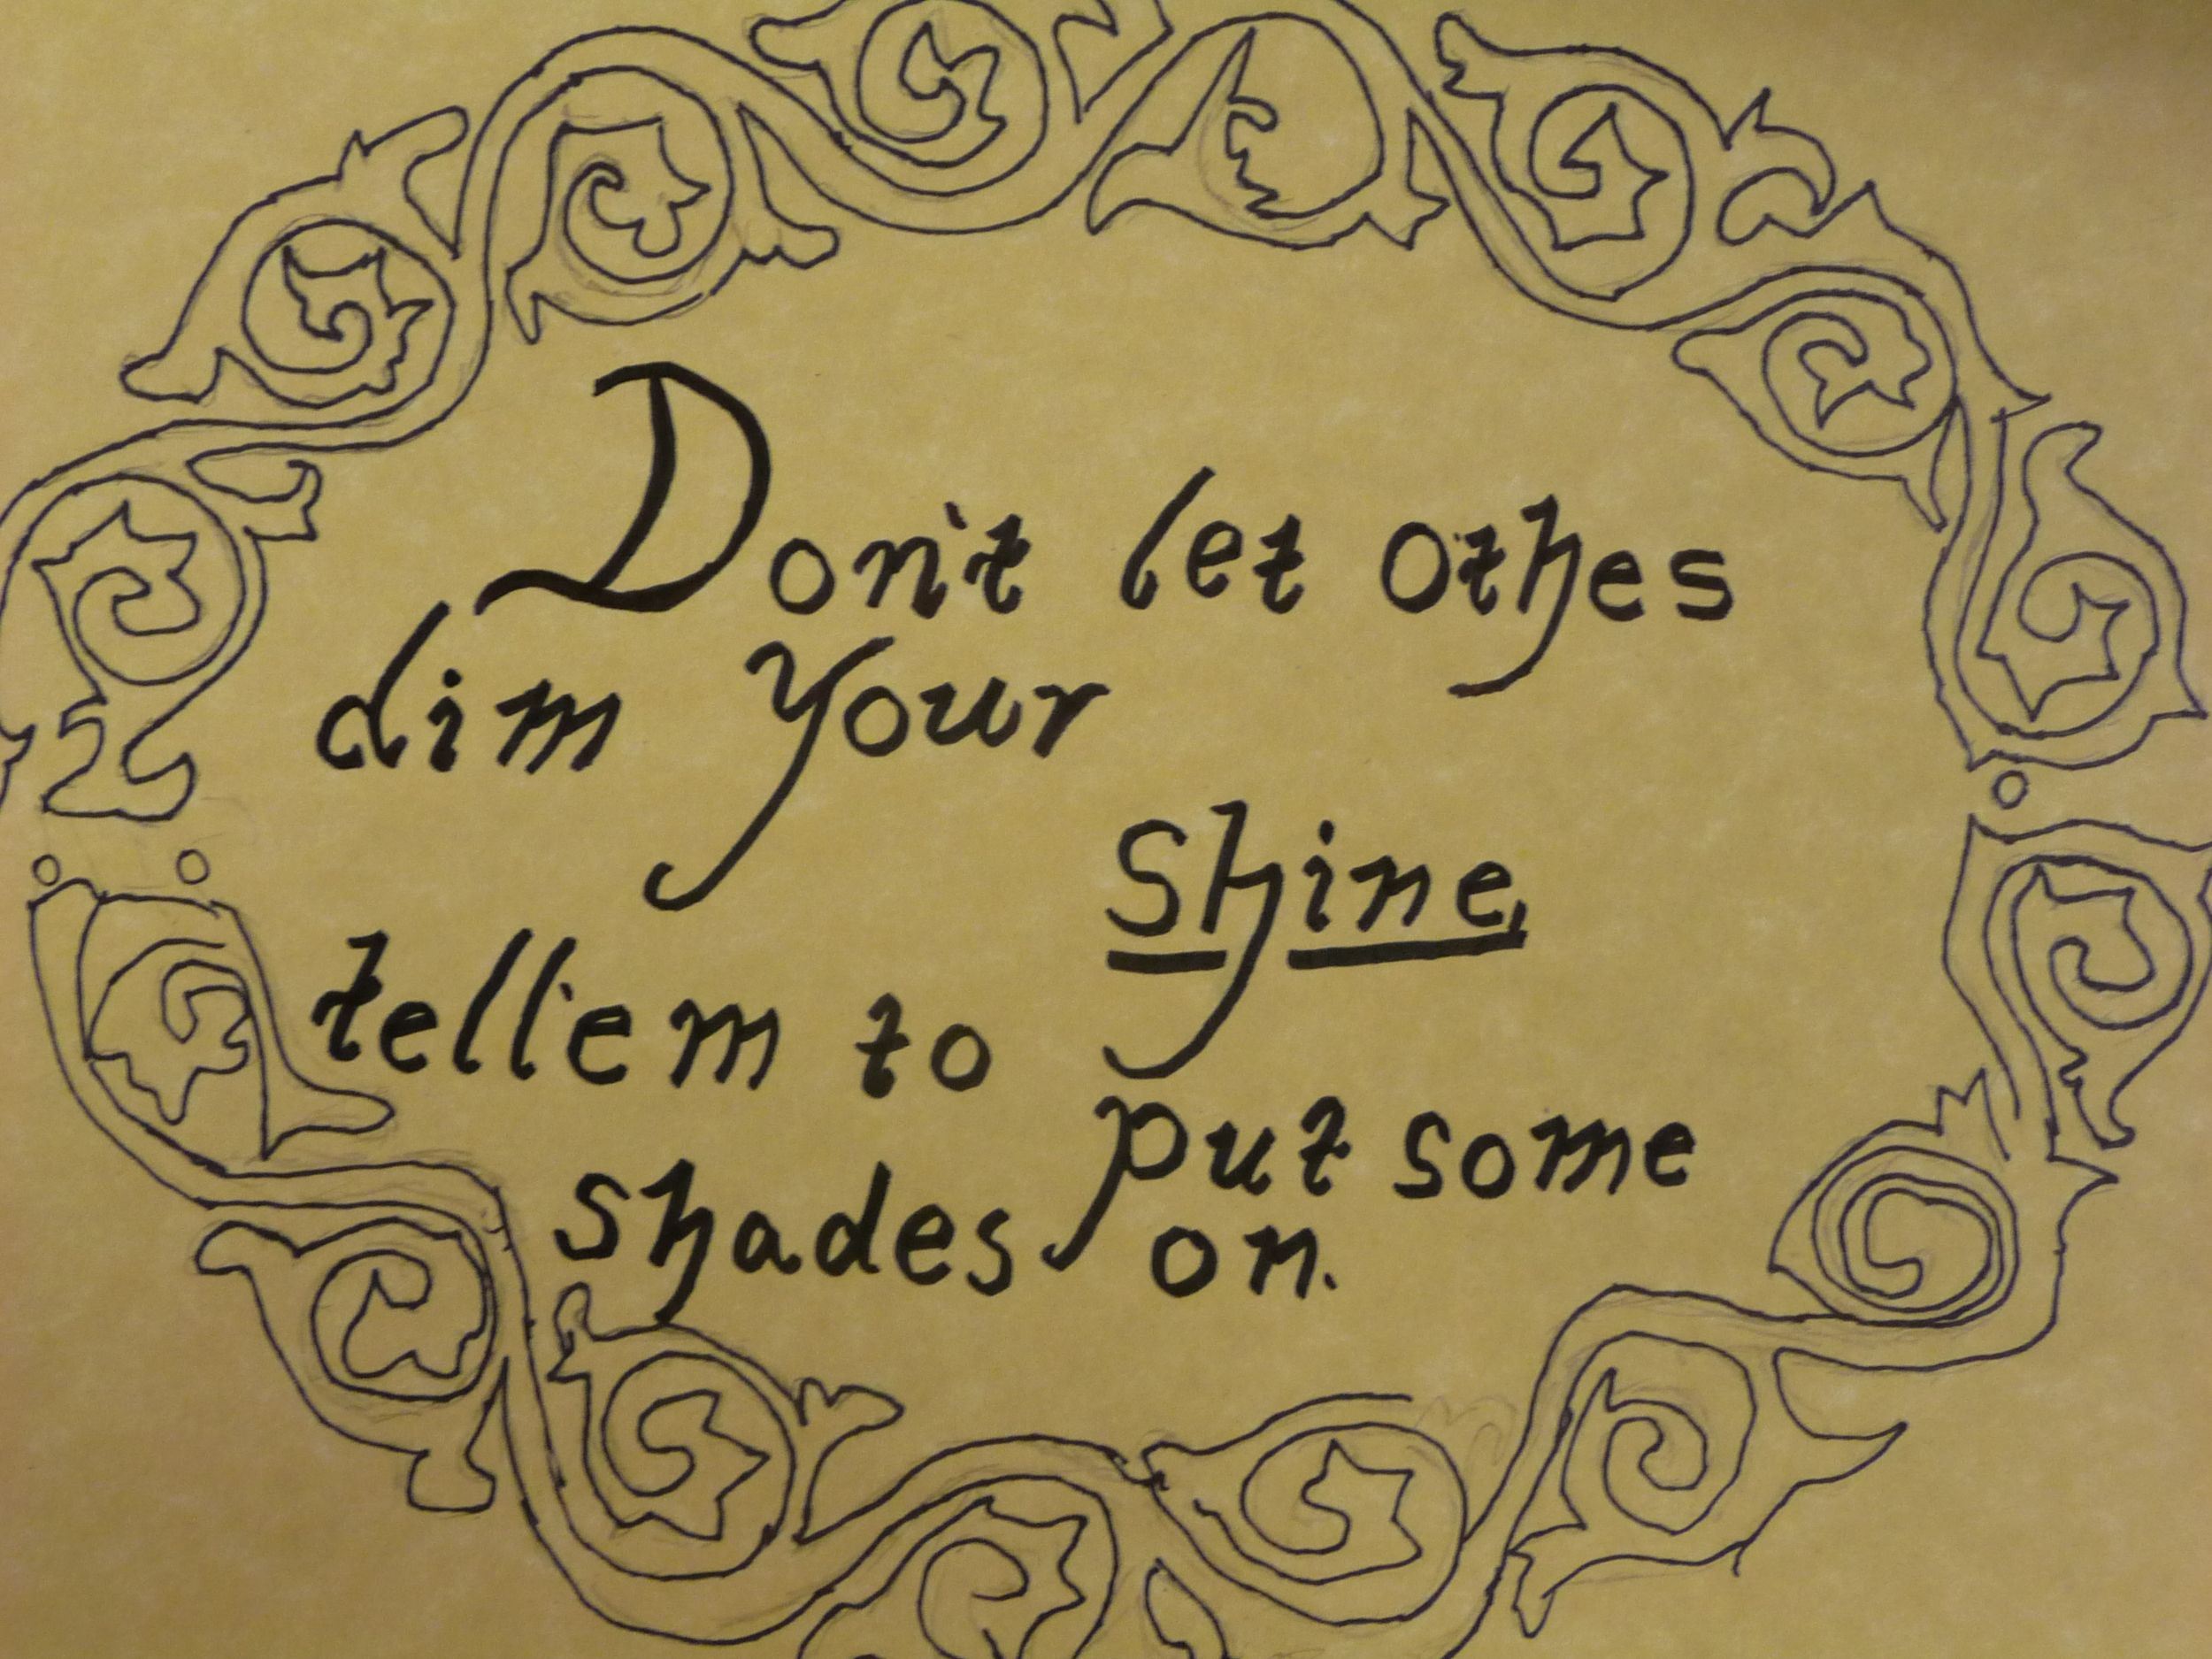 Don't let othes
dim your
shine,
tell'em to
put some
shades on.